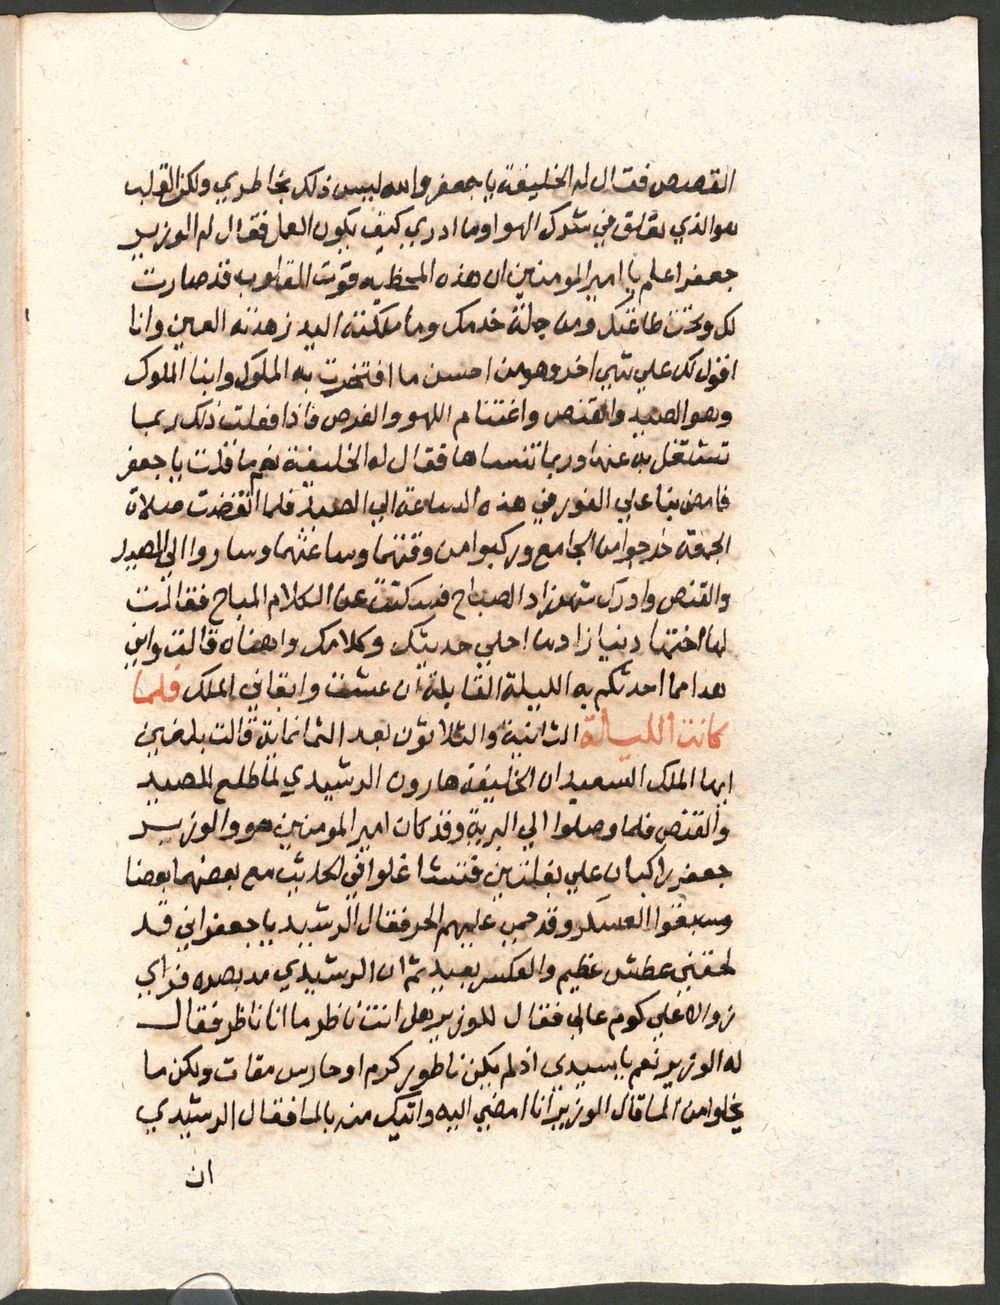 القصص فقال له الخليفة يا جعفر والله ليس ذلك بخاطري ولكن القلب
هو الذي تعلق في شرك الهوا وما ادري كيف يكون العمل فقال له الوزير
جعفر اعلم يا امير المومنين ان هذه المحظيه قوت القلوب قد صارت
لك وتحت طاعتك ومن جملة خدمك وما ملكته اليد زهدته العين وانا
اقول لك علي شي اخر وهو من احسن ما افتخرت به الملوك وابنا الملوك
وهو الصيد والقنص واغتنام اللهو والفرص فاذا فعلت ذلك ربما
تشتغل به عنها وربما تنساها فقال له الخليفة نعم ما قلت يا جعفر
فامض بنا علي الفور في هذه الساعة الي الصيد فلما انقضت صلاة
الجمعة خرجوا من الجامع وركبوا من وقتهما وساعتهما وساروا الي الصيد
والقنص وادرك شهرزاد الصباح فسكتت عن الكلام المباح فقالت
لها اختها دنيازاد ما احلي حديثك وكلامك واهناه قالت واين
هدا مما احدثكم به الليلة القابلة ان عشت وابقاني الملك فلما
كانت الليلة الثانية والثلاثون بعد الثمانماية قالت بلغني
ايها الملك السعيد ان الخليفة هارون الرشيدي لما طلع للصيد
والقنص فلما وصلوا الي البرية وقد كان امير المومنين هو والوزير
جعفر راكبان علي بغلتين فتشاغلوا في الحديث مع بعضهما بعضا
وسبقوا العسكر وقد حمي عليهم الحر فقال الرشيد يا جعفر اني قد
لحقني عطش عظيم والعكسر بعيد ثم ان الرشيدي مد بصره فراي
زواله علي كوم عالي فقال للوزير هل انت ناظر ما انا ناظر فقال
له الوزير نعم يا سيدي اذ لم يكن ناطور كرم او حارس مقات ولكن ما
يخلوا من الما قال الوزير انا امضي اليه واتيك منه بالما فقال الرشيدي
ان